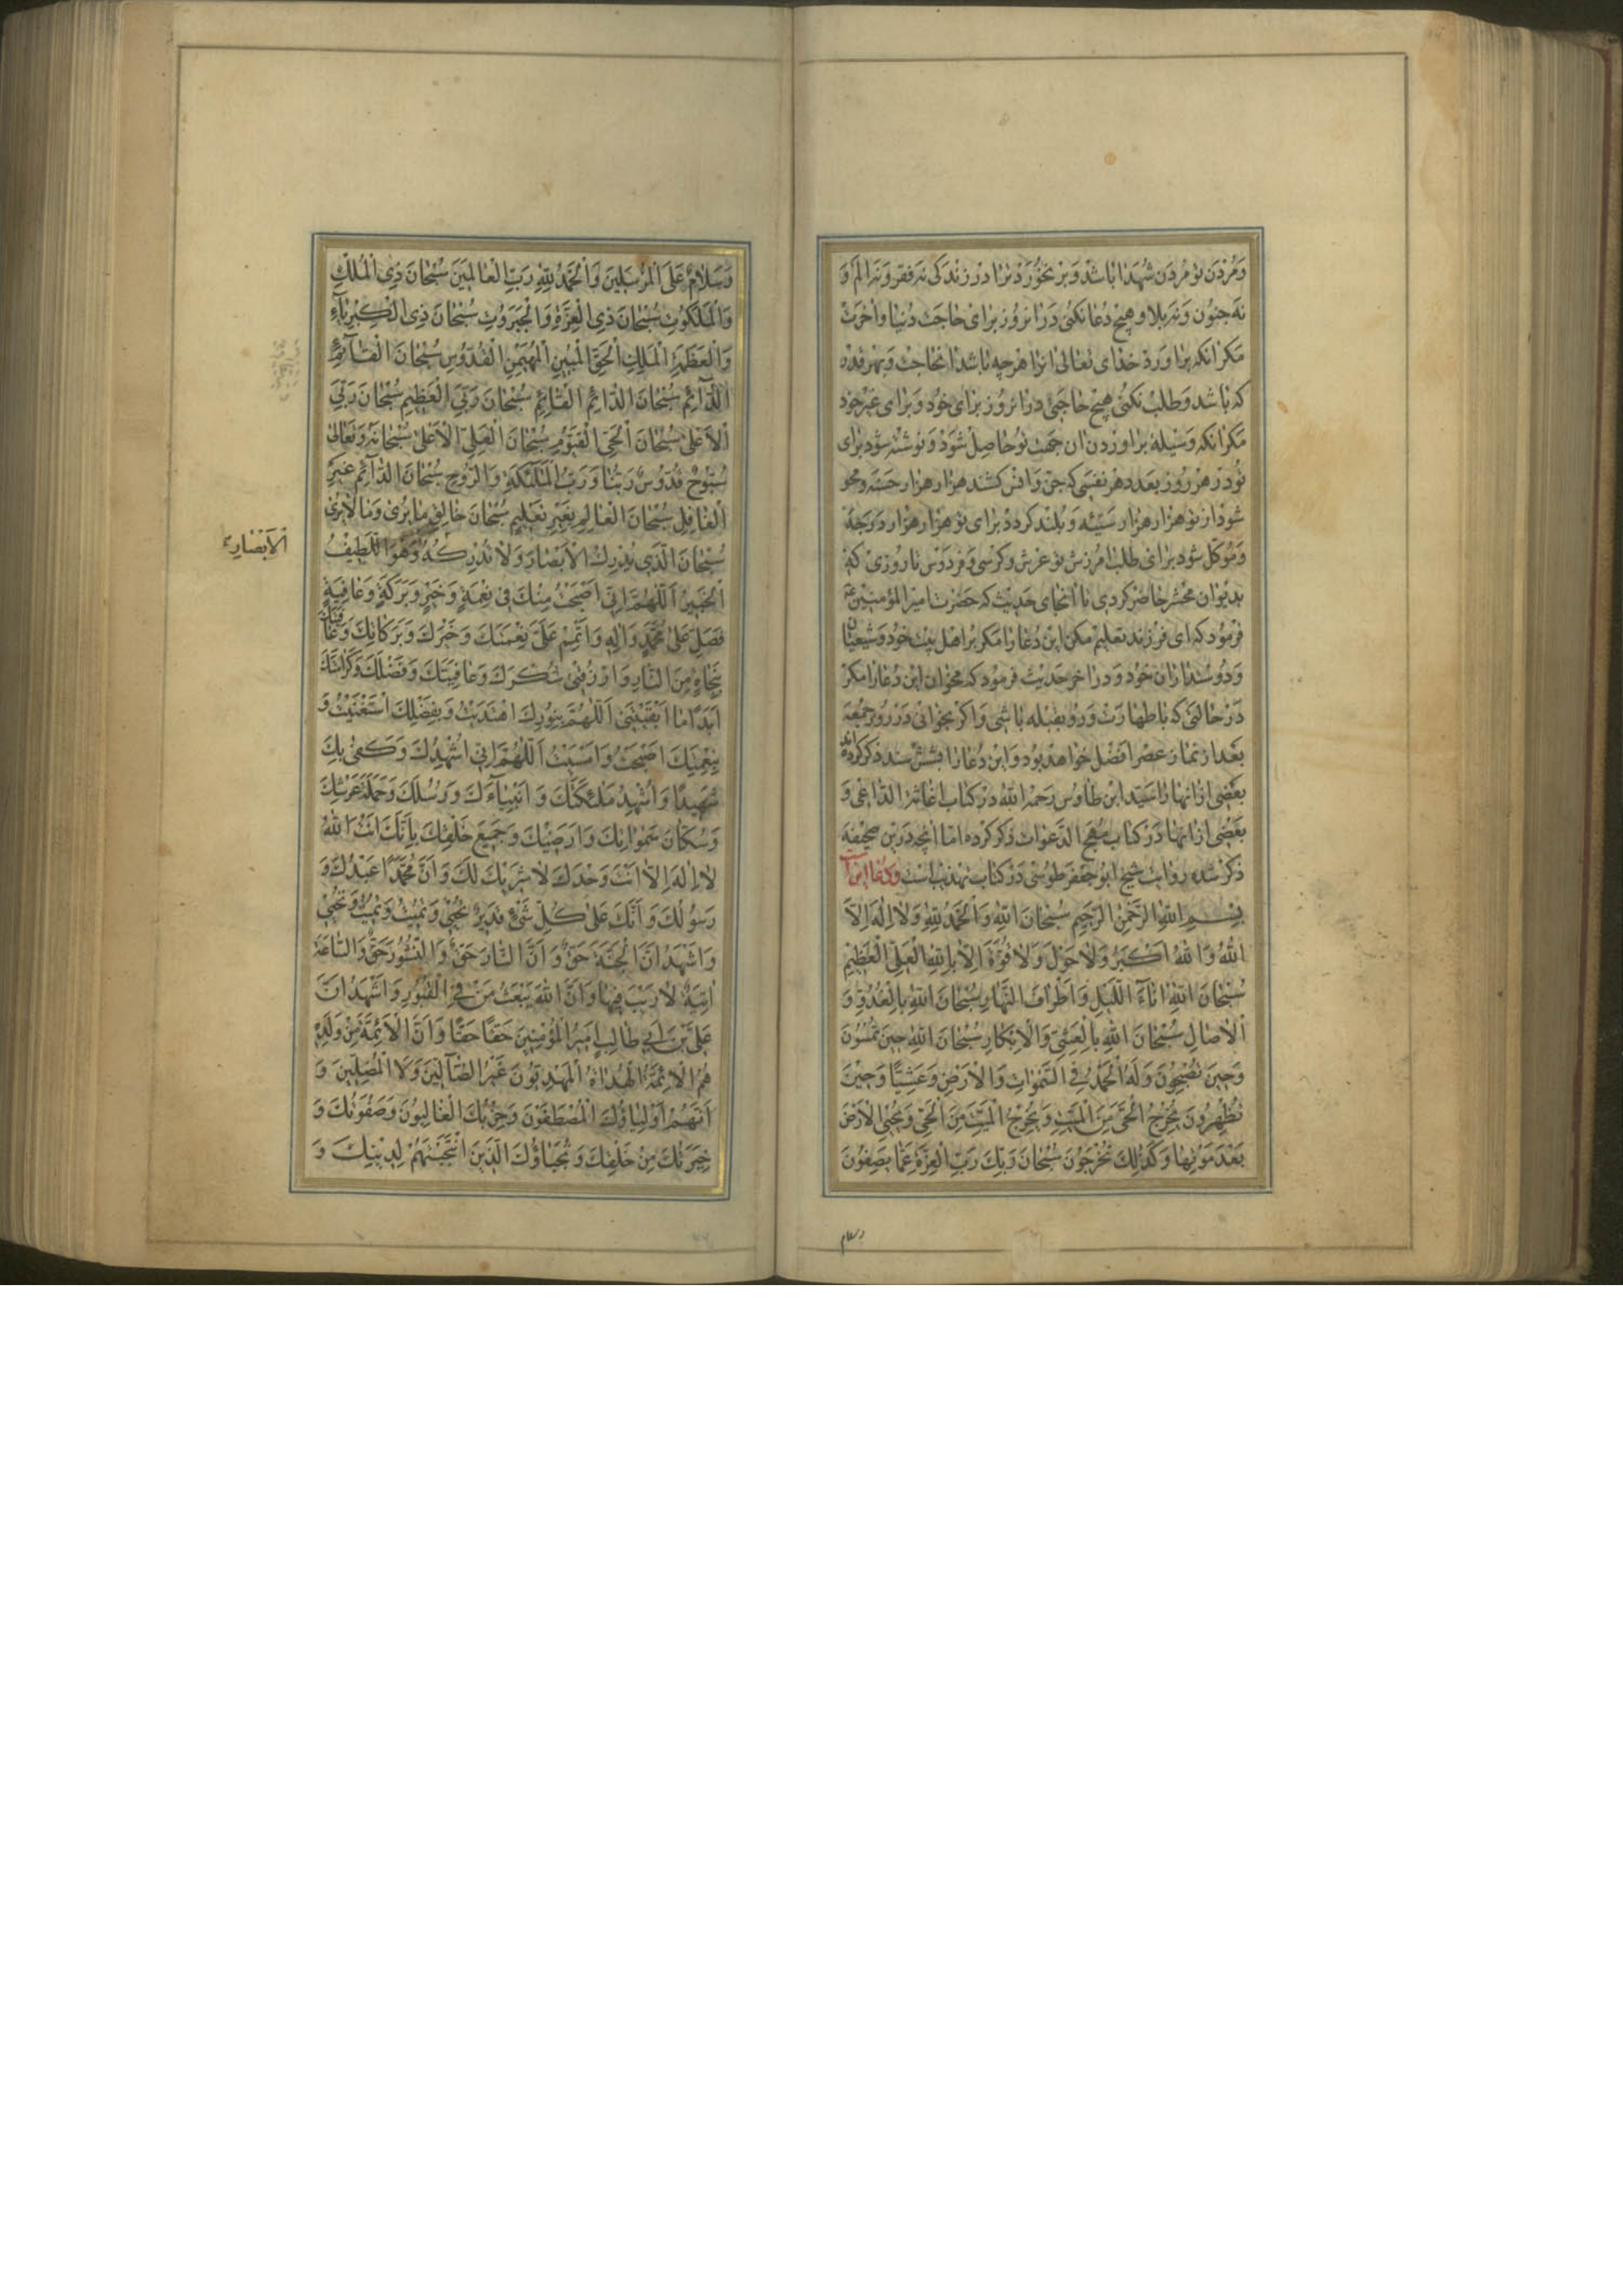 وَمُردَن تو مُردَن شُهَدا باشد وَبَر نخورَد ترا در زندکی نه فقر وَنه الَم وَ
نَه جنون وَنه بلا وهیچ دُعا نکنی دَر انروز برای حاجت دُنیا واخرَت
مَکر انکه براورد خدای تعالی انرا هرچه باشد انحاجت وبهر قدر
که باشد وَطلب نکنی هیچ حاجتی در انروز برای خود وَبرای غیر خود
مَکر انکه وَسیله براوردن ان جهت تو حاصِل شوَد وَنوشته شود برای
تو در هر روز بعدد هر نفسی که جن وَانس کشند هزار هزار حسنه ومحو
شود از تو هزار هزار سَیّئه وَبلند کردد برای تو هزار هزار دَرَجَه
وَموَکّل شود برای طلب امرزش تو عرش وکرسی وَفردَوس تا روزی که
بدیوان محشر حاضر کردی تا انجای حدیث که حضرت امیرالمؤمنین ع
فرمود که ای فرزند تعلیم مکن این دُعا را مکر بر اهل بیت خود وَشیعیان
وَدوستداران خود ودر اخر حَدیث فرمود که مخوان این دُعا را مکر
دَر حالتی که با طهارت وَرو بقبله باشی وَاکر بخوانی دَر روز جمُعه
بَعد از نماز عصر افضل خواهد بود وَاین دُعا را بشش سند ذکر کرده‌اند
بعَضی از انها را سَیّد ابن طاوس رَحمه الله در کتاب اغاثة الداعی وَ
بعضی از انها دَر کتاب مهج الدَّعوات ذکر کرده امّا انچه دَرین صحیفه
ذکر شده روایت شیخ ابو جعفر طوسی دَر کتاب تهذیب است ودُعا این است
بِسْمِ اللهِ الرَّحْمٰنِ الرَّحِیمِ سُبْحَانَ اللهِ وَالْحَمْدُ لِلهِ وَلَا اِلٰهَ اِلَّا
اللهُ وَاللهُ اَکْبَرُ وَلَا حَوْلَ وَلَا قُوَّةَ اِلَّا بِاللهِ الْعَلِیِّ الْعَظِیْمِ
سُبْحَانَ اللهِ اٰنَاءَ اللَّیْلِ وَاَطْرَافَ النَّهَارِ سُبْحَانَ اللهِ بِالْغُدُوِّ وَ
الْاٰصَالِ سُبْحَانَ اللهِ بِالْعَشِیِّ وَالْاِبْکَارِ سُبْحَانَ اللهِ حِینَ تُمْسُونَ
وَحِینَ تُصْبِحُونَ وَلَهُ الْحَمْدُ فِی السَّمٰوَاتِ وَالْاَرْضِ وَعَشِیًّا وَحِیْنَ
تُظْهِرُونَ یُخْرِجُ الْحَیَّ مِنَ الْمَیِّتِ وَیُخْرِجُ الْمَیِّتَ مِنَ الْحَیِّ وَیُحْیِی الْاَرْضَ
بَعْدَ مَوْتِهَا وَکَذٰلِكَ تُخْرَجُونَ سُبْحَانَ رَبِّكَ رَبِّ الْعِزَّةِ عَمَّا یَصِفُونَ
وسلام
وَسَلَامٌ عَلَی الْمُرْسَلِینَ وَالْحَمْدُ لِلهِ رَبِّ الْعَالَمِیْنَ سُبْحَانَ ذِی الْمُلْكِ
وَالْمَلَکُوتِ سُبْحَانَ ذِی الْعِزَّةِ وَالْجَبَرُوْتِ سُبْحَانَ ذِی الْکِبْرِیَآءِ
وَالْعَظَمَةِ الْمَلِكِ الْحَقِّ الْمُبِیْنِ الْمُهَیْمِنِ الْقُدُّوسِ سُبْحَانَ الْقَآئِمِ
الدَّآئِمِ سُبْحَانَ الدَّائِمِ الْقَائِمِ سُبْحَانَ رَبِّیَ الْعَظِیْمِ سُبْحَانَ رَبِّیَ
الْاَعْلٰی سُبْحَانَ الْحَیِّ الْقَیُّوْمِ سُبْحَانَ الْعَلِیِّ الْاَعْلٰی سُبْحَانَهُ وَتَعَالٰی
سُبُّوْحٌ قُدُّوْسٌ رَبُّنَا وَرَبُّ الْمَلٰٓئِکَةِ وَالرُّوْحِ سُبْحَانَ الدَّآئِمِ غَیْرِ
الْغَافِلِ سُبْحَانَ الْعَالِمِ بِغَیْرِ تَعْلِیْمٍ سُبْحَانَ خَالِقِ مَا یُرٰی وَمَا لَا یُرٰی
سُبْحَانَ الَّذِی یُدْرِكُ الْاَبْصَارَ وَلَا تُدْرِکُهُ وَهُوَ اللَّطِیْفُ
الْاَبْصَارُ
الْخَبِیْرُ اَللّٰهُمَّ اِنِّی اَصْبَحْتُ مِنْكَ فِی نِعْمَةٍ وَخَیْرٍ وَبَرَکَةٍ وَعَافِیَةٍ
فَصَلِّ عَلٰی مُحَمَّدٍ وَاٰلِهِ وَاَتْمِمْ عَلَیَّ نِعْمَتَكَ وَخَیْرَكَ وَبَرَکَاتِكَ وَعَافِیَتَكَ
بِنَجَاةٍ مِنَ النَّارِ وَارْزُقْنِی شُکْرَكَ وَعَافِیَتَكَ وَفَضْلَكَ وَکَرَامَتَكَ
اَبَدًا مَا اَبْقَیْتَنِی اَللّٰهُمَّ بِنُوْرِكَ اهْتَدَیْتُ وَبِفَضْلِكَ اسْتَغْنَیْتُ وَ
بِنِعْمَتِكَ اَصْبَحْتُ وَاَمْسَیْتُ اَللّٰهُمَّ اِنِّی اُشْهِدُكَ وَکَفٰی بِكَ
شَهِیدًا وَاُشْهِدُ مَلٰئِکَتَكَ وَاَنْبِیَآءَكَ وَرُسُلَكَ وَحَمَلَةَ عَرْشِكَ
وَسُکَّانَ سَمٰوَاتِكَ وَاَرَضِیْكَ وَجَمِیْعَ خَلْقِكَ بِاَنَّكَ اَنْتَ اللهُ
لَا اِلٰهَ اِلَّا اَنْتَ وَحْدَكَ لَا شَرِیْكَ لَكَ وَاَنَّ مُحَمَّدًا عَبْدُكَ وَ
رَسُولُكَ وَاَنَّكَ عَلٰی کُلِّ شَیْءٍ قَدِیْرٌ تُحْیِی وَتُمِیْتُ وَتُمِیْتُ وَتُحْیِی
وَاَشْهَدُ اَنَّ الْجَنَّةَ حَقٌّ وَاَنَّ النَّارَ حَقٌّ وَالنُّشُوْرَ حَقٌّ وَالسَّاعَةَ
اٰتِیَةٌ لَا رَیْبَ فِیْهَا وَاَنَّ اللهَ یَبْعَثُ مَنْ فِی الْقُبُوْرِ وَاَشْهَدُ اَنَّ
عَلِیَّ بْنَ اَبِی طَالِبٍ اَمِیرُ الْمُؤْمِنِیْنَ حَقًّا حَقًّا وَاَنَّ الْاَئِمَّةَ مِنْ وَلَدِهِ
هُمُ الْاَئِمَّةُ الْهُدَاةُ الْمَهْدِیُّونَ غَیْرُ الضَّآلِّیْنَ وَلَا الْمُضِلِّیْنَ وَ
اَنَّهُمْ اَوْلِیَاؤُكَ الْمُصْطَفَوْنَ وَحِزْبُكَ الْغَالِبُوْنَ وَصَفْوَتُكَ وَ
خِیَرَتُكَ مِنْ خَلْقِكَ وَنُجَبَاؤُكَ الَّذِیْنَ انْتَجَبْتَهُمْ لِدِیْنِكَ وَ